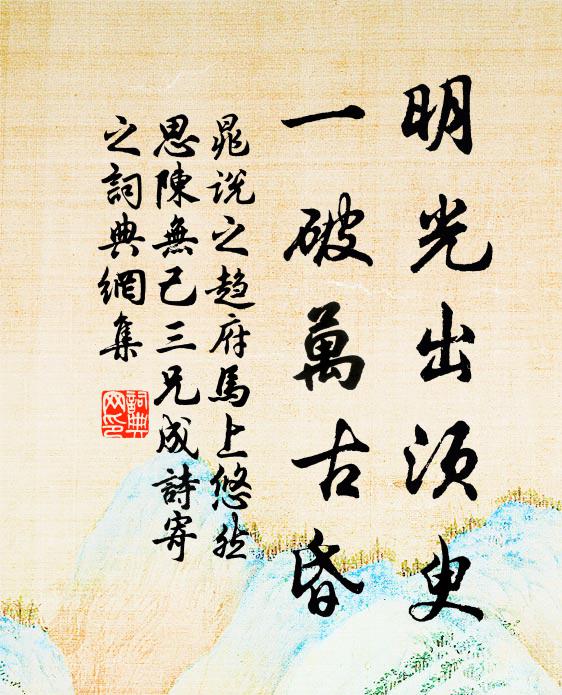 明光出須臾
一破萬古昏
晁说之趋府馬上悠然
思陳無己三兄成詩寄
之詞典網集
詞典
网印